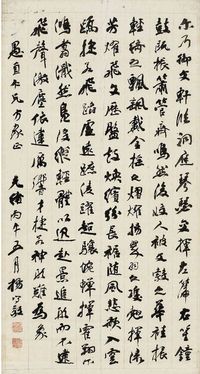 尔乃御文軒臨洞庭琴瑟交揮左篪右笙鐘
鼓俱振簫管齊鳴然後姣人被文縠之華袿振
輕綺之飄颻戴金搖之熠燿揚翠羽之雙翹揮流
芳燿飛文歷盤鼓煥繽紛長裾隨風悲歌入雲
蹻捷若飛蹈虛遠蹠凌躍超驤蜿蟬揮霍翔爾
鴻翥濈然鳧沒縱輕體以迅赴景追形而不逮
飛聲激塵依違厲響才捷若神形難為象
仁兄方家正
光緒丙午五月楊守敬